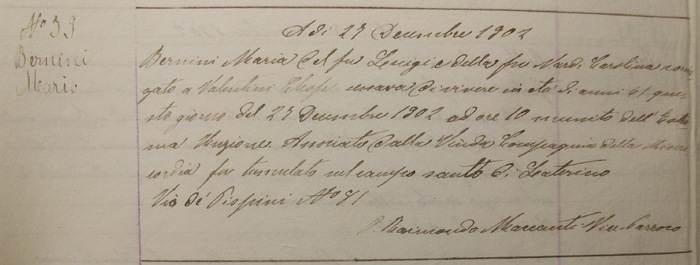 N° 39
Bernini
Mario
Adi 27 Decembre 1902
Bernini Mario del fu Luigi e della fu Nardi Carolina coniu
gato a Valentini cessava di vivere in età di anni 61 que
sto giorno del 27 Decembre 1902 ad ore 10 munito dell' Estre
ma Unzione. Associato dalla Ven.da Compagnia della Miseri
cordia fu tumulato nel campo santo di Laterino
Via de' Pispini N° 71
P. Raimondo Vic. Parroco